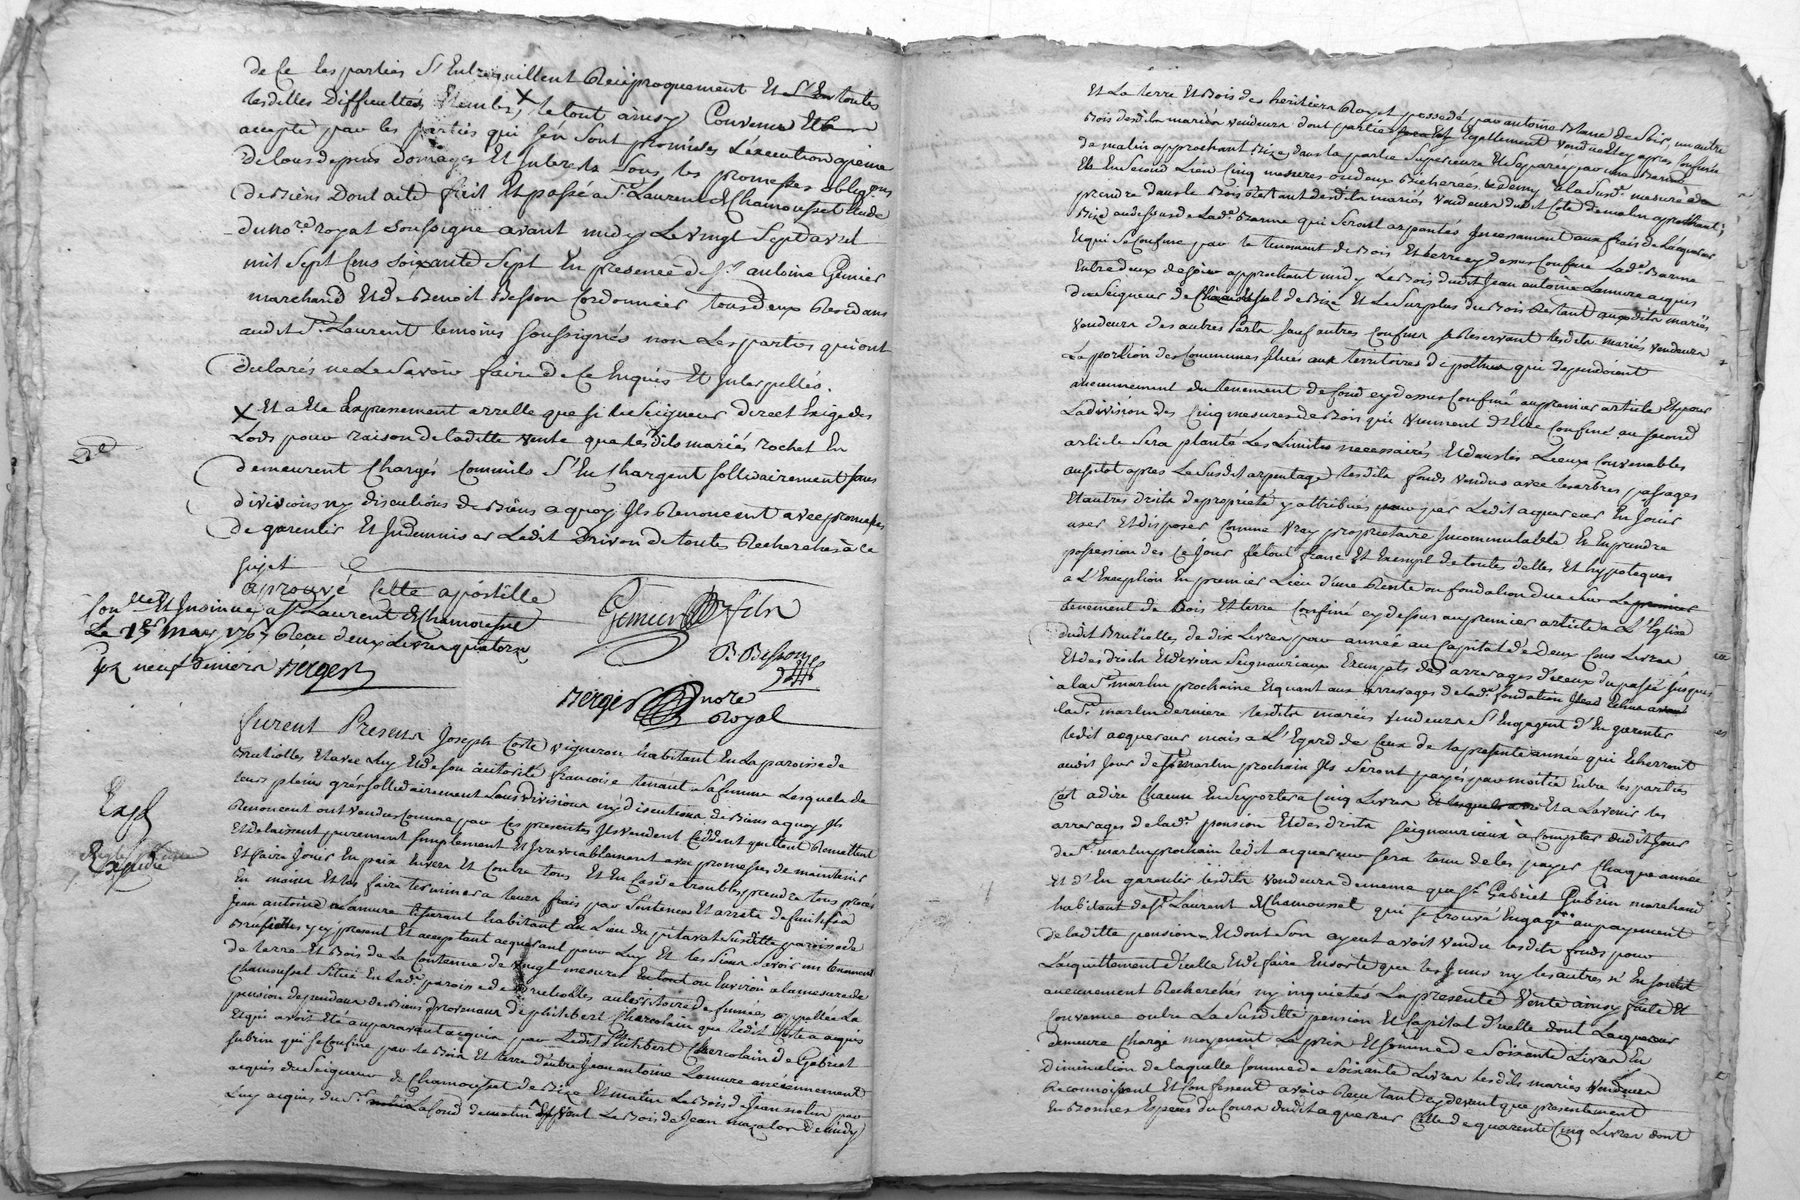 de Ce les parties S'Entrequittent Reciproquement Et S'En toutes
lesdittes Difficultés X le tout ainsy Convenu Et
accepté par les parties qui s'en sont promises L'execution a peine
de tous depens Domages Et Interets sous les promesses obligons
de Biens Dont acte fait Et passé a St Laurent de Chamousset Etude
du nore royal soussigné avant midy Le vingt Sept avril
mil sept Cens soixante Sept En presence de Sr antoine Genier
marchand Et de Benoit Besson Cordonnier tous deux Residans
audit St Laurent temoins soussignés non Les parties qui ont
declarés ne Le Savoir faire de Ce Enquis Et Interpellés.
X Et a Eté Expressement arreste que si le Seigneur direct Exige des
Lods pour raison de laditte vente que lesdits mariés rochet En
demeurent Chargés Comm'ils S'En Chargent sollidairement sans
divisions ny discutions de Biens a quoy Ils Renoncent avec promesses
De garentir Et Indemniser Ledit Drivon de toutes Recherches à ce
sujet
aprouvé Cette apostille
Genier fils
Conlle Et Insinué a St Laurent de Chamousset
Le 1er may 1767 Receu deux Livres quatorze
B. Besson
sols neuf deniers Berger
Berger nore
Royal
furent Presens Joseph Coste vigneron habitant En La paroisse de
Brullioles Et avec luy Et de son autorité francoise tenant sa femme Lesquels de
leurs pleins grés sollidairement Sans Divisions ny discutions de Biens a quoy Ils
Renoncent ont vendus Comme par Ces presentes Ils vendent Cedent quittent Remettent
Et delaissent purement simplement Et Irrevocablement avec promesses de maintenir
Et faire Jouir En paix Envers Et Contre tous Et En Cas de troubles prendre tous procés
En mains Et les faire terminer a leurs frais par Sentences Et arrets definitifs a
Jean antoine Lamure tisserant habitant au Lieu du pitaval Susditte paroisse de
Brullioles y present Et acceptant acquerant pour Luy Et les Siens savoir un tenement
de terre Et Bois de La Contenue de vingt mesures En tout ou Environ a la mesure de
Chamousset Situé En Lade paroisse de Brullioles au territoire de appellée La
pension dependant de Biens provenans de philibert Chercolain que ledit Coste a aquis
Et qui avoit Eté auparavant acquis par Ledit Philibert Chercolain de Gabriel
Gubrin qui se Confine par le Bois Et terre dudit Jean antoine Lamure anciennement
aquis du Seigneur de Chamousset de Bize Et matin Le Bois de Jean molin par
Luy aquis du Sr La fond de matin Et vent Le Bois de Jean de midy
Et La terre Et Bois des heritiers Rozet possedé par antoine Blanc de Soir, un autre
Bois desdits mariés vendeurs dont partie sera Egallement vendue Et cy apres Confinée
de matin approchant Bize, dans la partie Superieure Et Separée par une Barme
Et En Second Lieu Cinq mesures ou deux Bicherées Et demy a la Susde mesure à
prendre dans le Bois restant desdits mariés Vendeurs dudit Coté de matin approchant
Bize au dessus de Lade Barme qui Seront arpentés Incessament aux frais de Lacquereur
Et qui Se Confine par le tenement de Bois Et terre cy dessus Confiné Lade Barme
Entre deux de soir approchant midy Le Bois dudit Jean antoine Lamure acquis
du Seigneur de Chamousset de Bize Et Le Surplus du Bois Restant auxdits mariés
Vendeurs des autres Parts sauf autres Confins se Reservant lesdits mariés vendeurs
La portion des Communes situés aux territoires de qui dependoient
anciennement du tenement de fond cy dessus Confiné au premier article Et pour
La division des Cinq mesures de Bois qui Viennent d'Etre Confiné au second
article Sera planté Les Limites necessaires Et dans les Lieux Convenables
aussitot apres Le Susdit arpentage lesdits fonds vendus avec les arbres passages
Et autres droits de proprieté y attribués pour par Ledit aquereur En Jouir
user Et disposer Comme Vray proprietaire Incommutable Et En prendre
possession des Ce Jour Le tout franc Et Exempt de toutes dettes Et hypoteques
a L'Exception En premier Lieu d'une Rente ou fondation due Sur Le premier
tenement de Bois Et terre Confiné cy dessus au premier article a L'Eglise
dudit Brullioles de dix Livres par année au Capital de deux Cens Livres
Et des droits Et devoirs Seigneuriaux Exempts des arrerages d'iceux du passé jusques
a la St martin prochaine Et quant aux arrerages de lade fondation
la St martin derniere lesdits mariés vendeurs S'Engagent d'En garentir
ledit acquereur mais a L'Egard de Ceux de la presente année qui Echerront
audit Jour de St martin prochain Ils Seront payés par moitié Entre les parties
C'est a dire Chacune En Suportera Cinq Livres Et a Lavenir les
arrerages de lade pension Et des droits seigneuriaux à Compter dudit Jour
de St martin prochain ledit acquereur sera tenu de les payer Chaque année
Et d'En garentir lesdits vendeurs de meme que Sr Gabriel Gubrin marchand
habitant de St Laurent de Chamousset qui se trouve Engagé au payement
de laditte pension Et dont Son ayent avoit vendu lesdits fonds pour
L'acquittement d'icelle Et de faire En sorte que les Juns ny les autres n'En soient
aucunement Recherchés ny inquietés La presente Vente ainsy faite Et
Convenue outre La Susditte pension Et Capital d'icelle dont Lacquereur
demeure Chargé moyenant Le prix Et Somme de Soixante Livres En
diminution de laquelle somme de Soixante Livres lesdits mariés vendeurs
Reconnoissent Et Confessent avoir Receu tant cy devant que presentement
En Bonnes Especes du Cours dudit aquereur Celle de quarente Cinq Livres dont